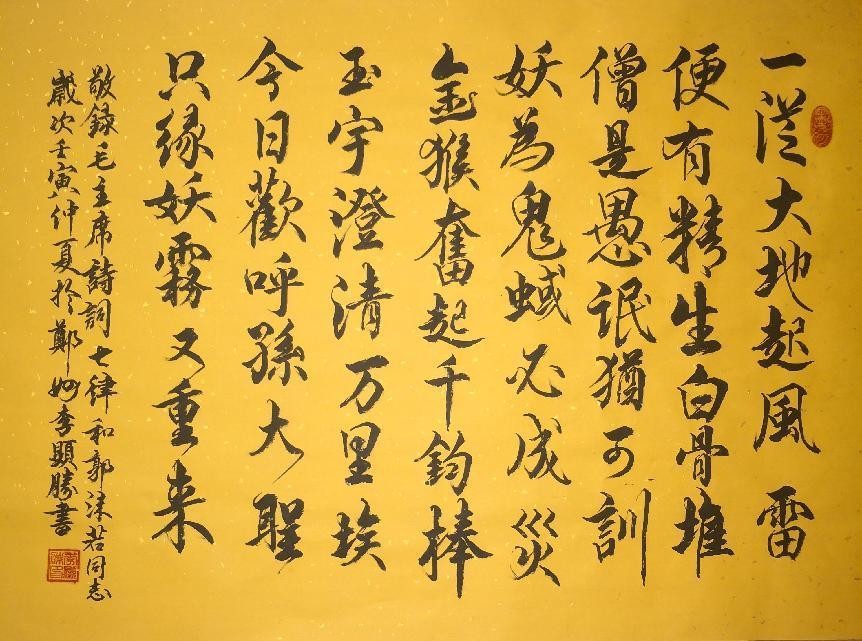 一從大地起風雷
便有精生白骨堆
僧是愚氓猶可訓
妖為鬼蜮必成災
金猴奮起千鈞棒
玉宇澄清万里埃
今日歡呼孫大聖
只緣妖霧又重来
敬録毛主席詩詞七律和郭沫若同志
歲次壬寅仲夏於鄭州李顯勝書